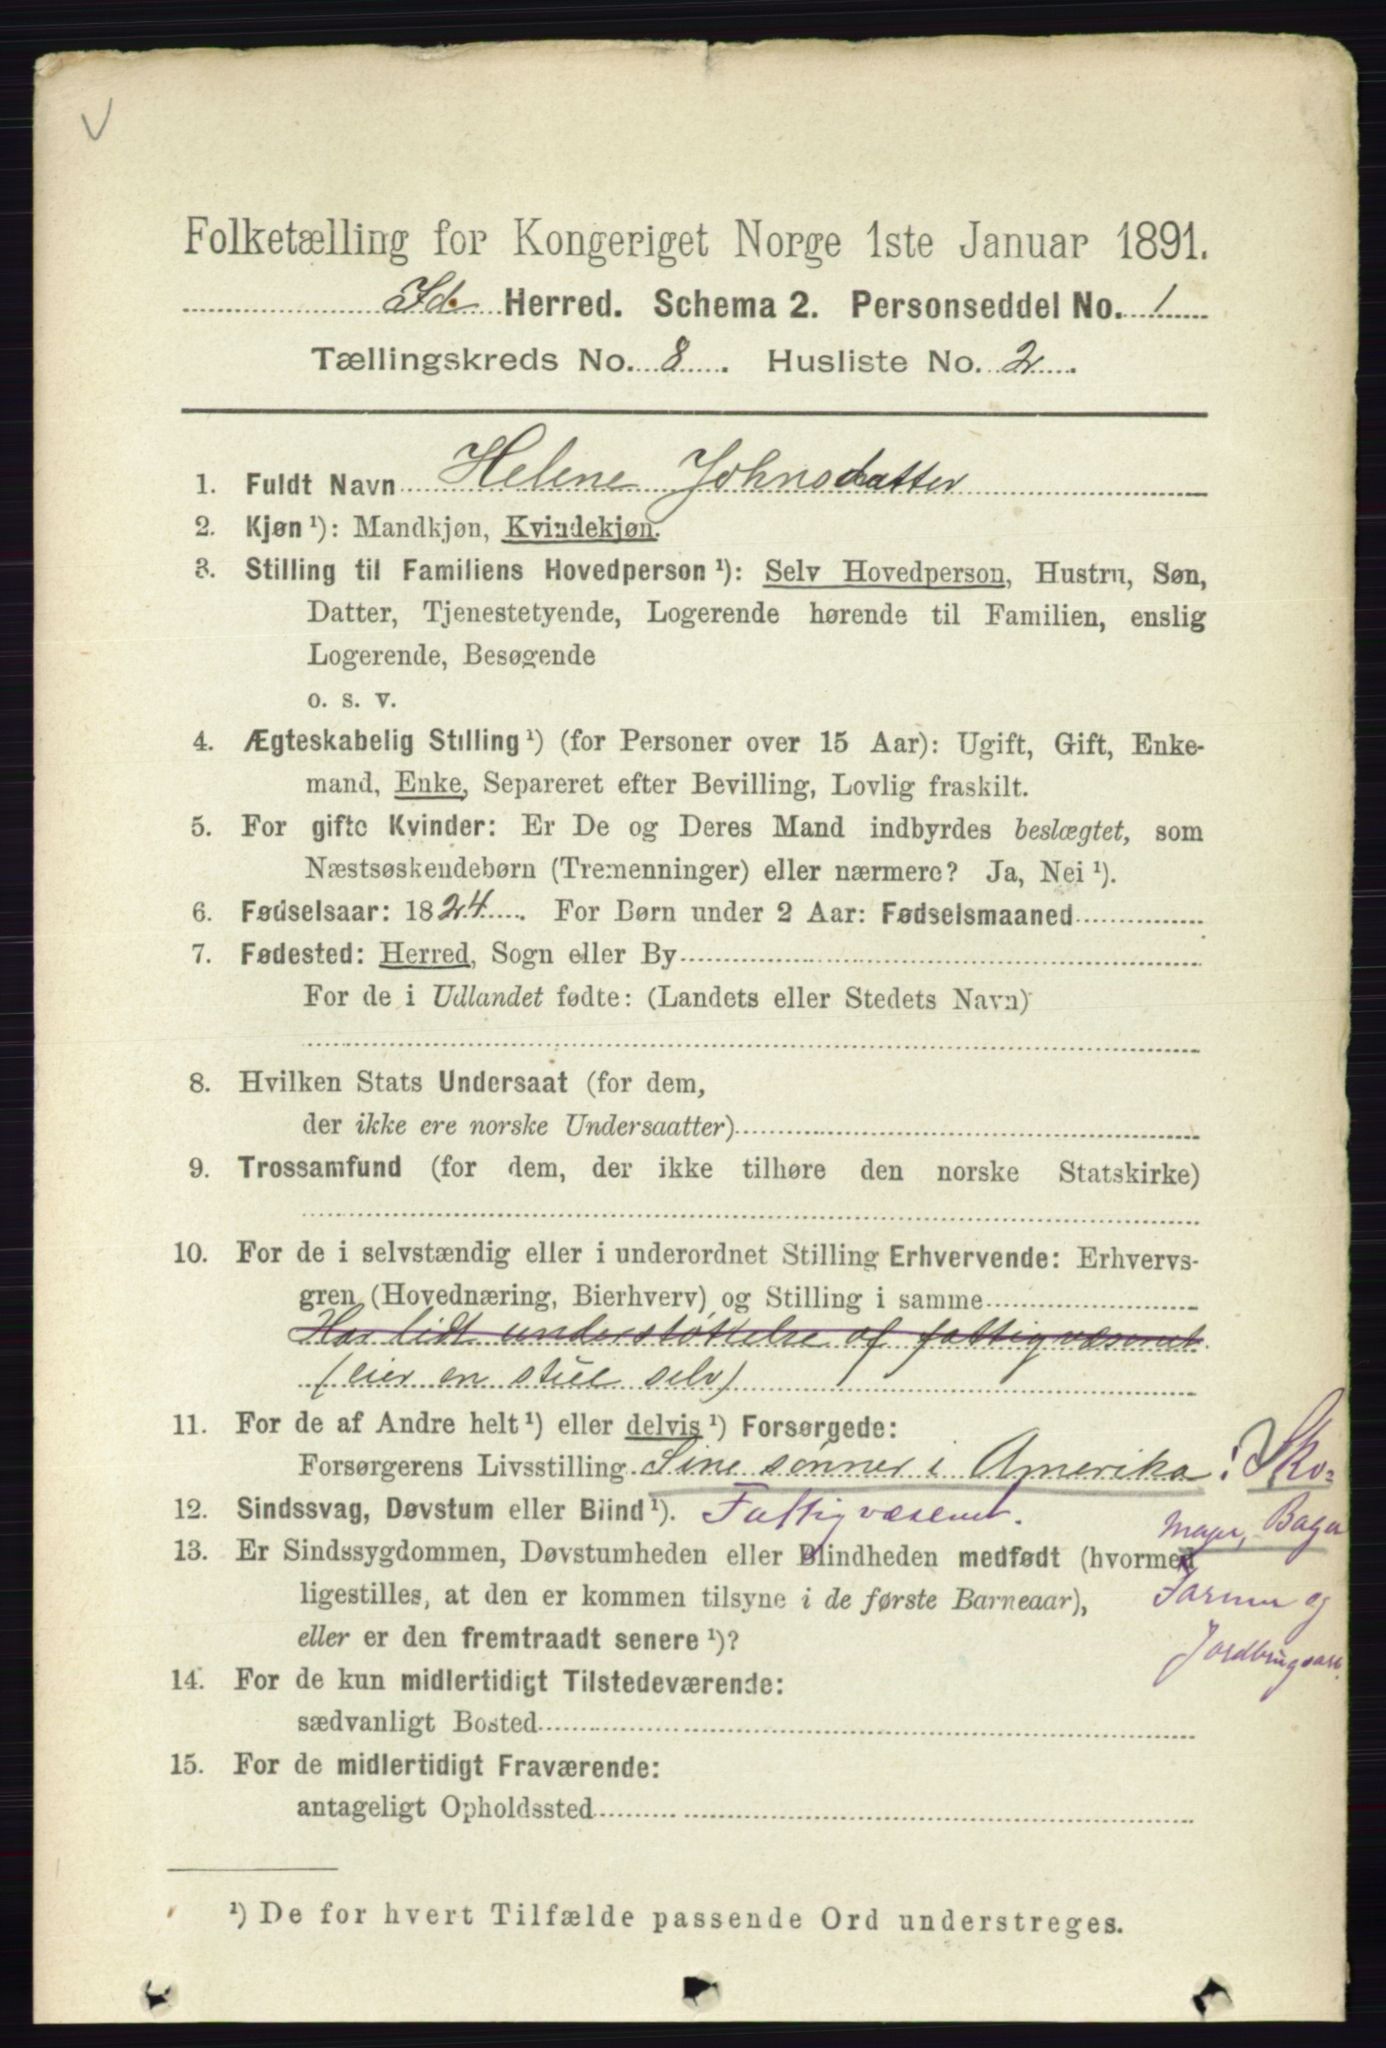 V
Folketælling for Kongeriget Norge 1ste Januar 1891.
Id. Herred. Schema 2. Personseddel No. 1
Tællingskreds No. 8. Husliste No. 2.
1. Fuldt Navn Helene Johnsdatter
2. Kjøn ¹): Mandkjøn, Kvindekjøn.
3. Stilling til Familiens Hovedperson ¹): Selv Hovedperson, Hustru, Søn,
Datter, Tjenestetyende, Logerende hørende til Familien, enslig
Logerende, Besøgende
o. s. v.
4. Ægteskabelig Stilling ¹) (for Personer over 15 Aar): Ugift, Gift, Enke-
mand, Enke, Separeret efter Bevilling, Lovlig fraskilt.
5. For gifte Kvinder: Er De og Deres Mand indbyrdes beslægtet, som
Næstsøskendebørn (Tremenninger) eller nærmere? Ja, Nei ¹).
6. Fødselsaar: 1824. For Børn under 2 Aar: Fødselsmaaned
7. Fødested: Herred, Sogn eller By
For de i Udlandet fødte: (Landets eller Stedets Navn)
8. Hvilken Stats Undersaat (for dem,
der ikke ere norske Undersaatter)
9. Trossamfund (for dem, der ikke tilhøre den norske Statskirke)
10. For de i selvstændig eller i underordnet Stilling Erhvervende: Erhvervs-
gren (Hovednæring, Bierhverv) og Stilling i samme
Har lidt understøttelse af fattigvæsnet
(eier en stue selv)
11. For de af Andre helt ¹) eller delvis ¹) Forsørgede:
Forsørgerens Livsstilling Sine sønner i Amerika: Sko-
12. Sindssvag, Døvstum eller Blind ¹). Fattigvæsenet. mager, Baga
13. Er Sindssygdommen, Døvstumheden eller Blindheden medfødt (hvormed
ligestilles, at den er kommen tilsyne i de første Barneaar), Farmer og
eller er den fremtraadt senere ¹)? Jordbrugsarb.
14. For de kun midlertidigt Tilstedeværende:
sædvanligt Bosted
15. For de midlertidigt Fraværende:
antageligt Opholdssted
¹) De for hvert Tilfælde passende Ord understreges.